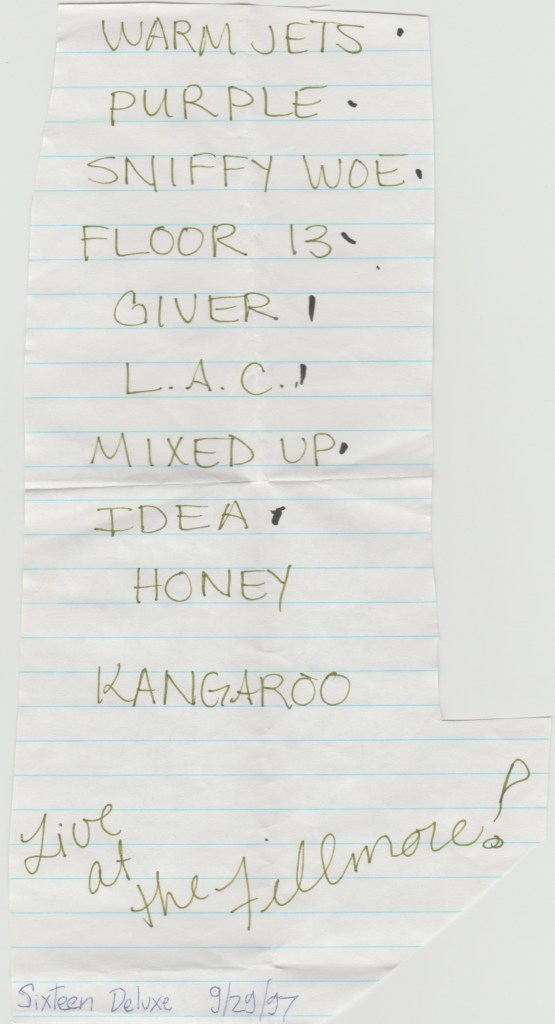 WARM JETS
PURPLE
SNIFFY WOE
FLOOR 13
GIVER
L.A.C.
MIXED UP
IDEA
HONEY
KANGAROO
Live
at
the Fillmore!
Sixteen Deluxe 9/29/97